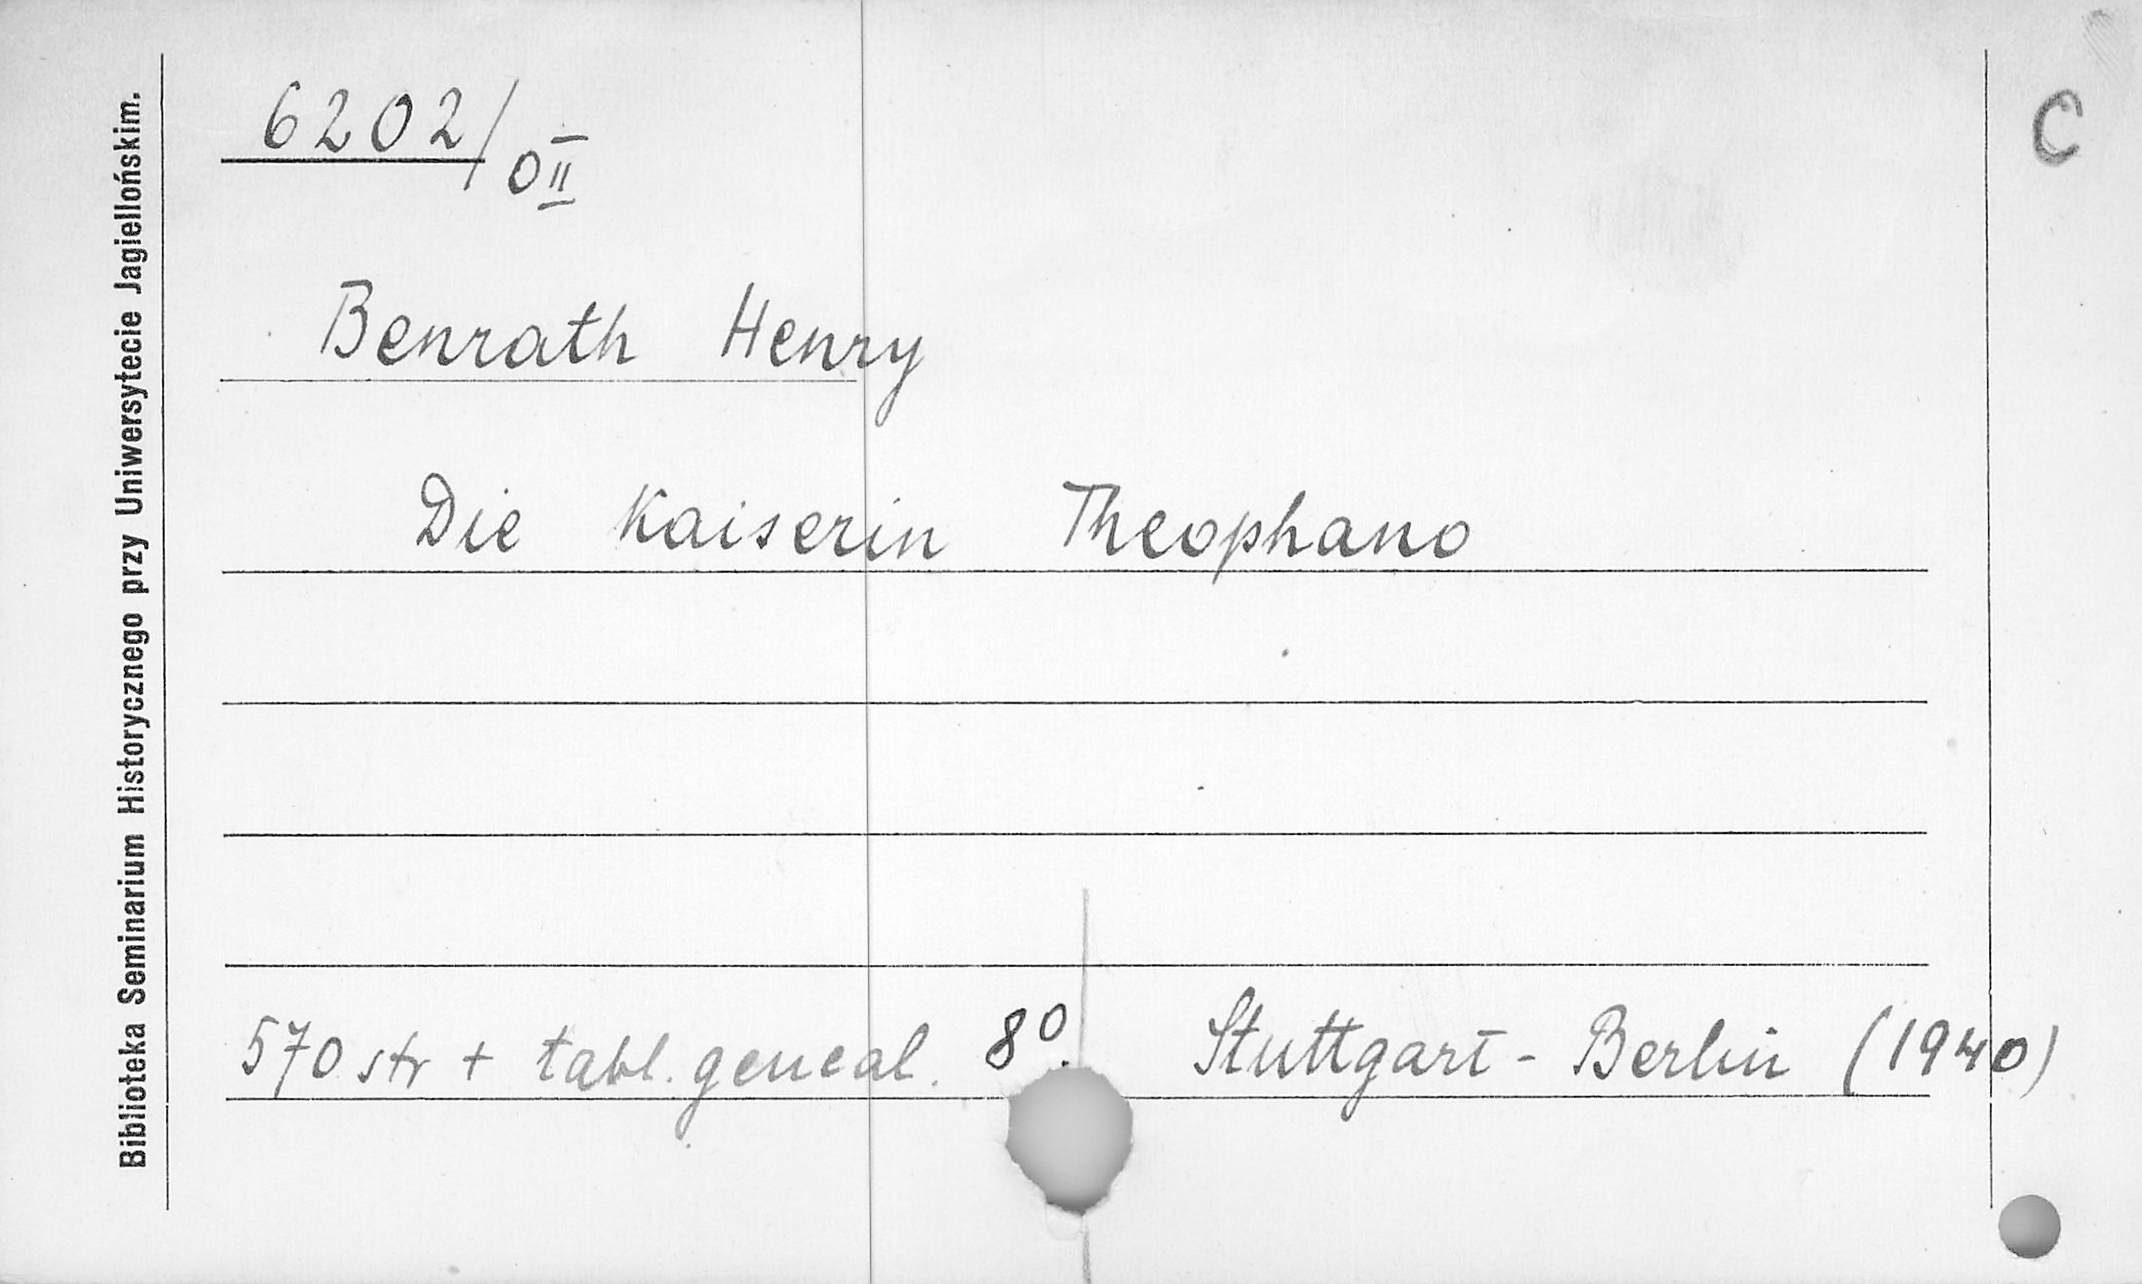 Biblioteka Seminarium Historycznego przy Uniwersytecie Jagiellońskim.
6202/OII
C
Benrath Henry
Die Kaiserin Theophano
570 str + tabl. geneal. 8º. Stuttgart - Berlin (1940)